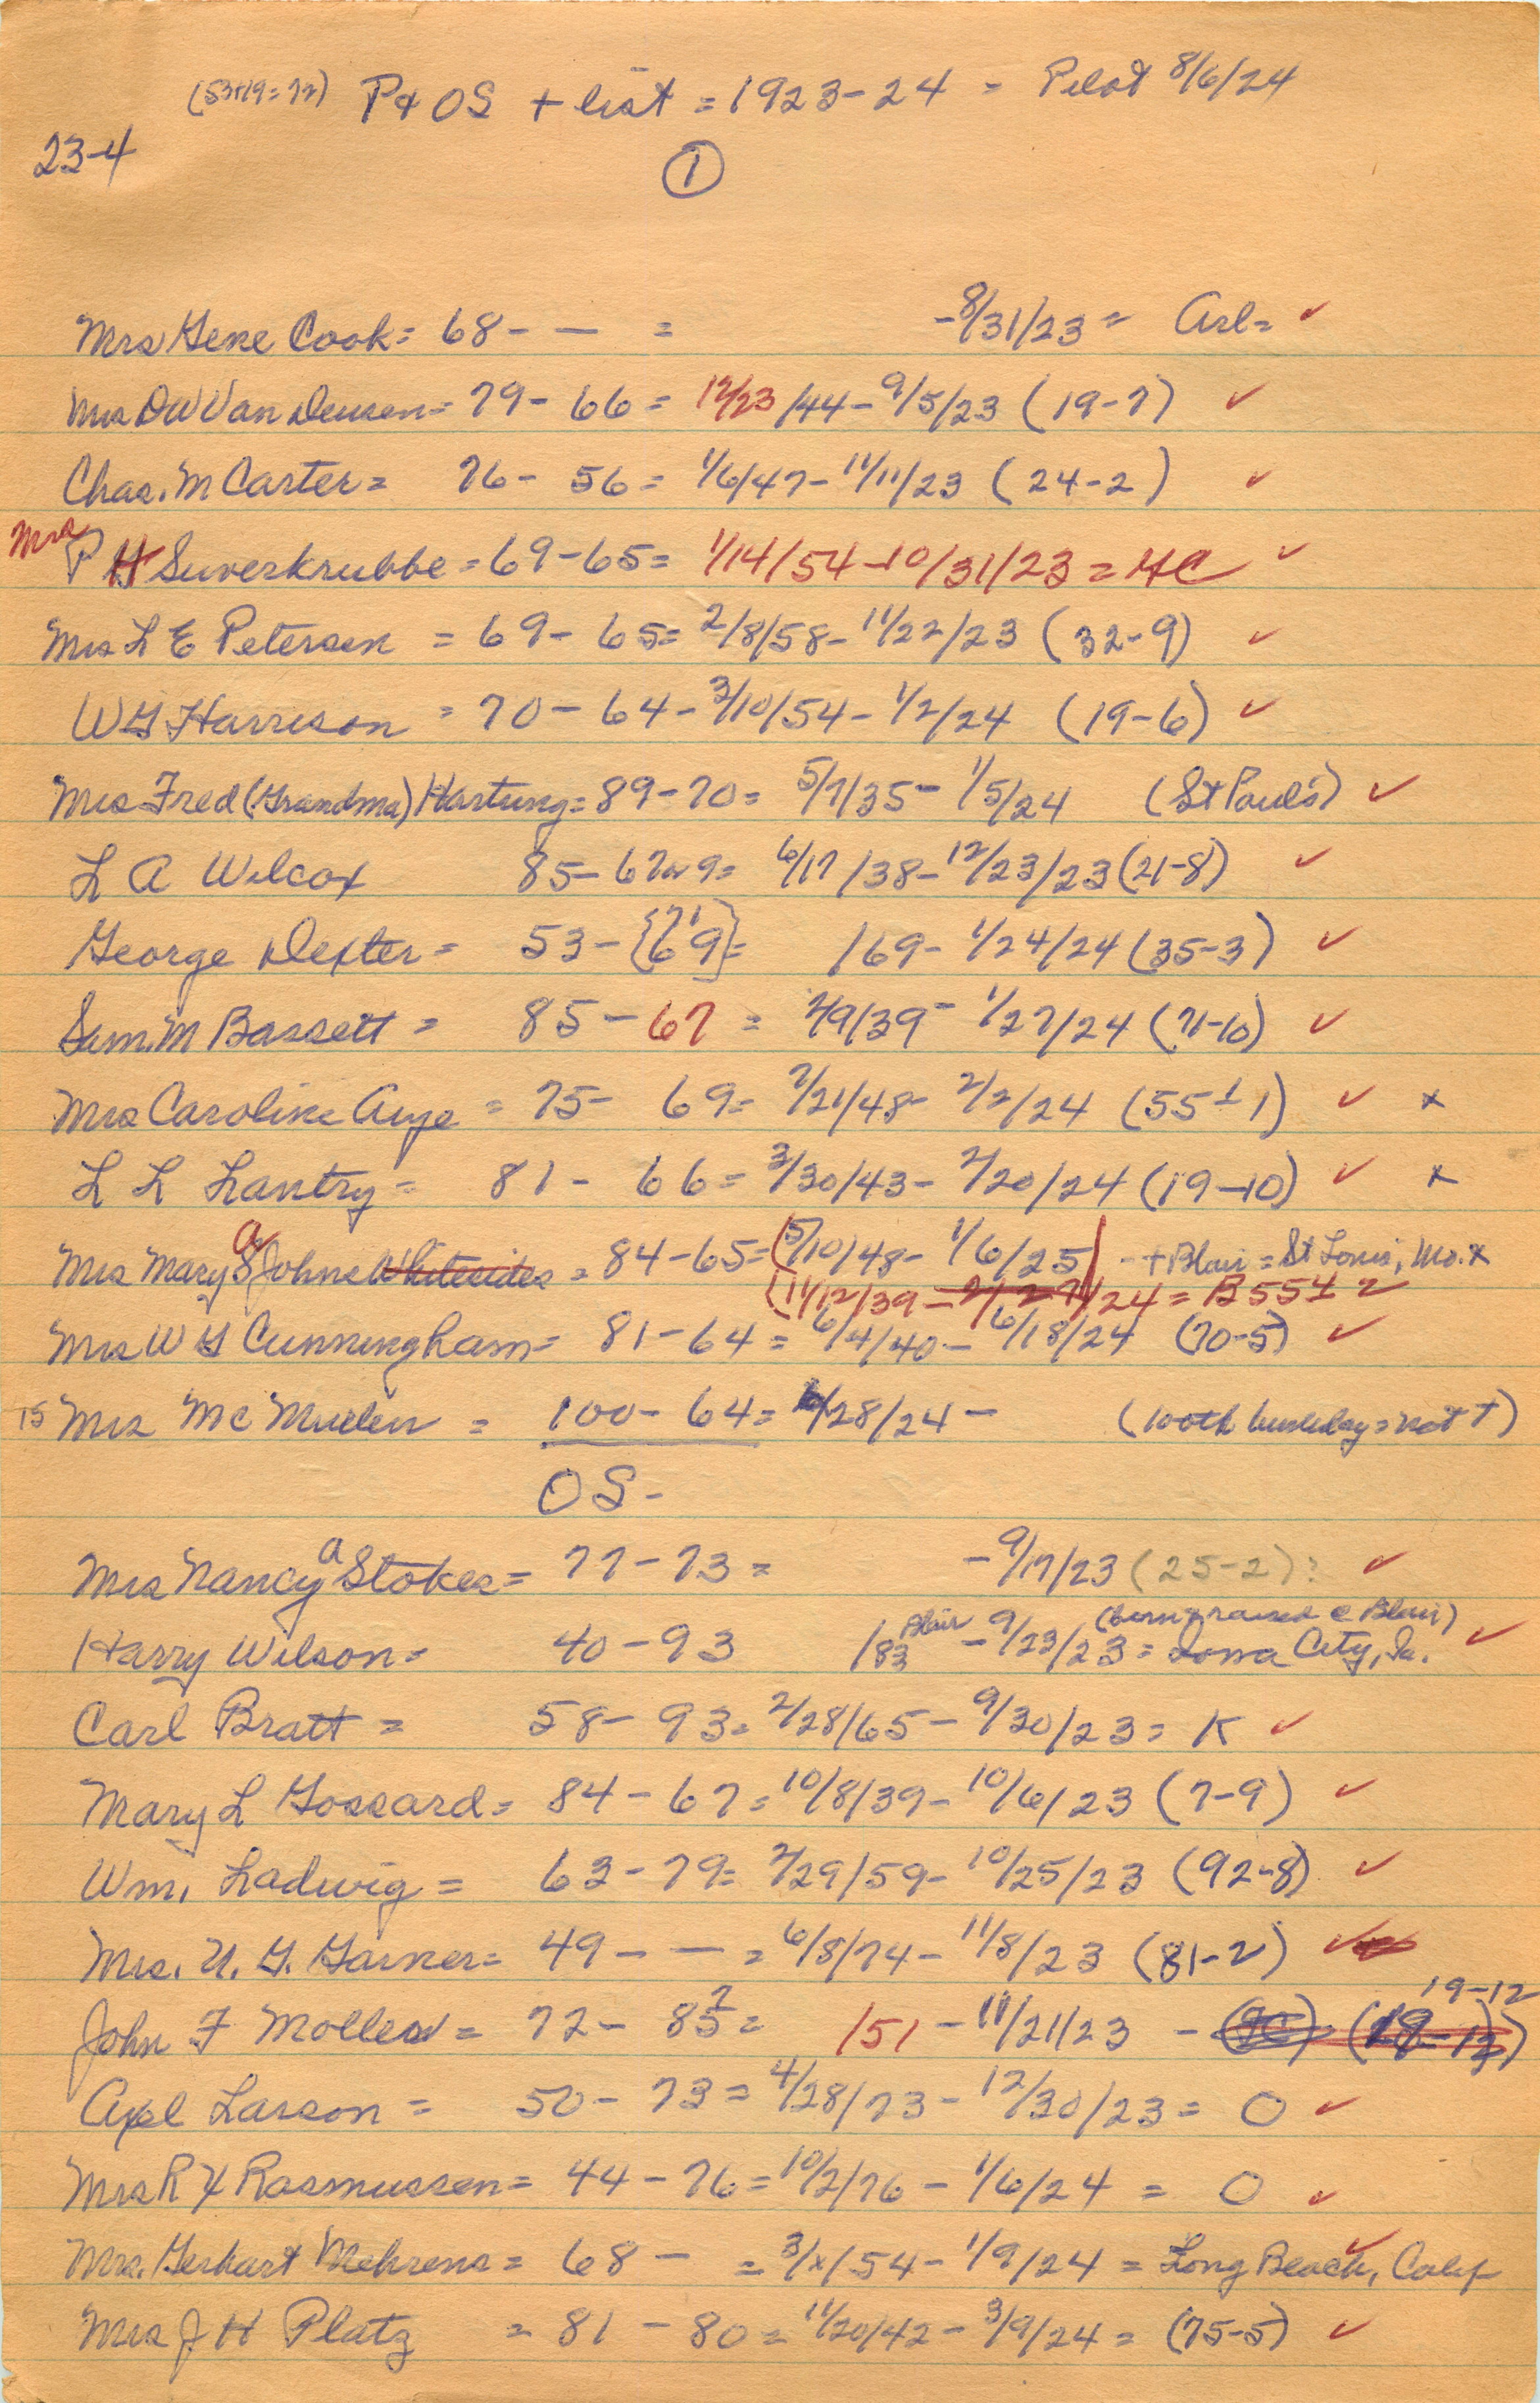 (53+19=72) P & OS + list = 1923-24 - Pilot 8/6/24
23-4
1
Mrs Gene Cook = 68- — = -8/31/23 = Arl= ✓
Mrs DW Van Deusen = 79- 66 = 12/23/44-9/5/23 (19-7) ✓
Chas. M Carter = 76- 56 = 1/6/47-11/11/23 (24-2) ✓
Mrs P H Suverkrubbe = 69-65 = 1/14/54-10/31/23 = HC ✓
Mrs L E Petersen = 69- 65 = 2/8/58-11/22/23 (32-9) ✓
W G Harrison = 70- 64-3/10/54-1/2/24 (19-6) ✓
Mrs Fred (Grandma) Hartung = 89-70 = 5/7/35-1/5/24 (St Paul's) ✓
L A Wilcox 85-67 or 9 = 6/17/38-12/23/23 (21-8) ✓
George Dexter = 53-{71 69} = /69-1/24/24 (35-3) ✓
Sam. M Bassett = 85-67 = 7/9/39-1/27/24 (71-10) ✓
Mrs Caroline Auge = 75- 69 = 7/21/48-2/2/24 (55±1) ✓ x
L L Lantry = 81- 66 = 3/30/43-2/20/24 (19-10) ✓ x
Mrs Mary a Johns Whitesides = 84-65 = (5/10/48-1/6/25) - + Blair = St Louis, Mo. x
(11/12/39-2/27/24 = B 55±2
Mrs W G Cunningham = 81-64 = 6/4/40-6/18/24 (70-5) ✓
15 Mrs McMullen = 100-64 = 6/28/24- (100th birthday = not +)
OS-
Mrs Nancy a Stokes = 77-73 = -9/17/23 (25-2)? ✓
(born & raised @ Blair)
Harry Wilson = 40-93 /83 Blair -9/23/23 = Iowa City, Ia. ✓
Carl Bratt = 58-93 = 2/28/65-9/30/23 = K ✓
Mary L Gossard = 84-67 = 10/8/39-10/6/23 (7-9) ✓
Wm. Ladwig = 63-79 = 7/29/59-10/25/23 (92-8) ✓
Mrs. U. G. Garner = 49- — = 6/8/74-11/8/23 (81-2) ✓
19-12
John F Moller = 72-85? = /51-11/21/23 - (18-12)
Axel Larson = 50-73 = 4/28/73-12/30/23 = O ✓
Mrs R H Rasmussen = 44-76 = 10/2/76-1/6/24 = O ✓
Mrs. Gerhart Mehrens = 68- = 3/x/54-1/9/24 = Long Beach, Calif ✓
Mrs J H Platz = 81-80 = 11/20/42-3/9/24 = (75-5) ✓